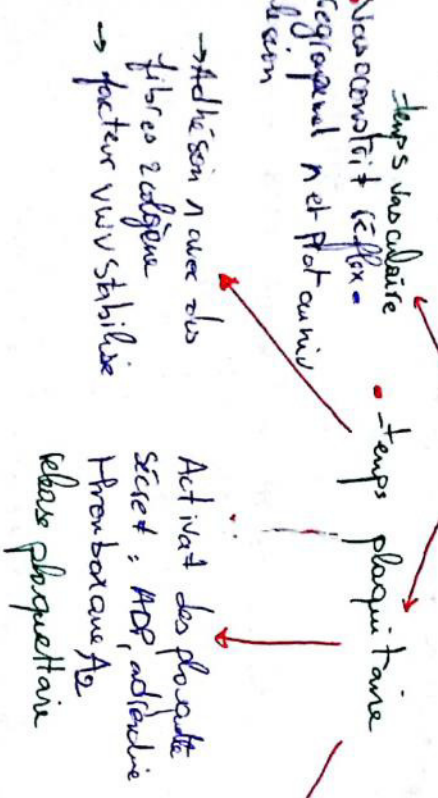 temps vasculaire
Vasoconstrict réflexe
regroupmt n et Plat au niv
lésion
• - temps plaquitaire
→ Adhésion n avec ds
fibres collgène
→ facteur vWV stabilise
Activat des plaqutte
Sécret : ADP, adrénaline
thromboxane A2
release plaquettaire